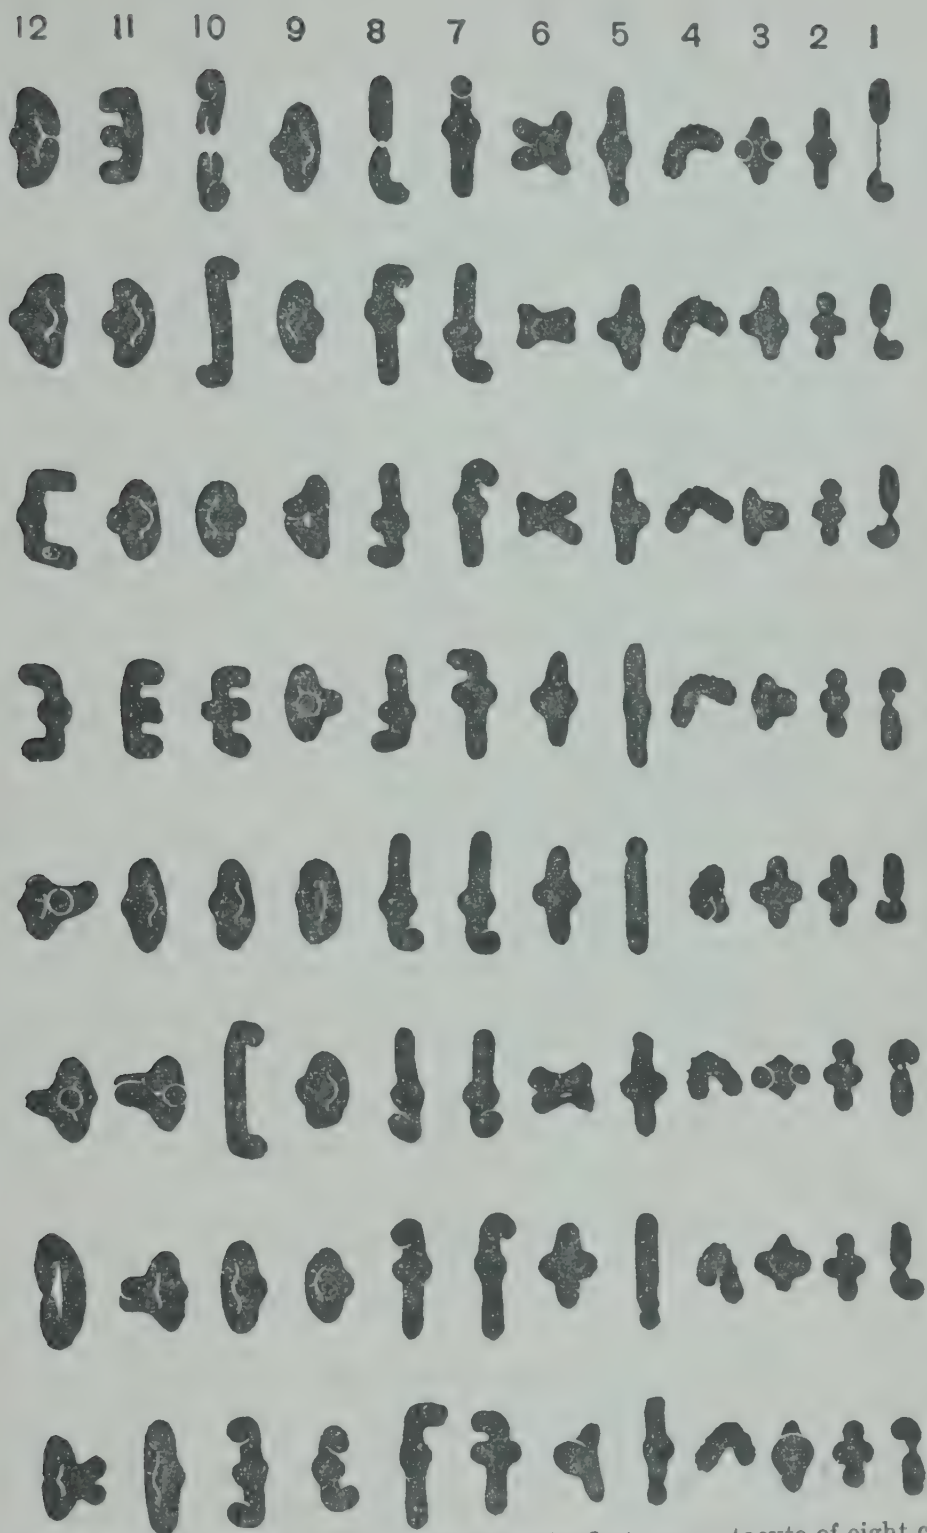 12 11 10 9 8 7 6 5 4 3 2 1
of eight